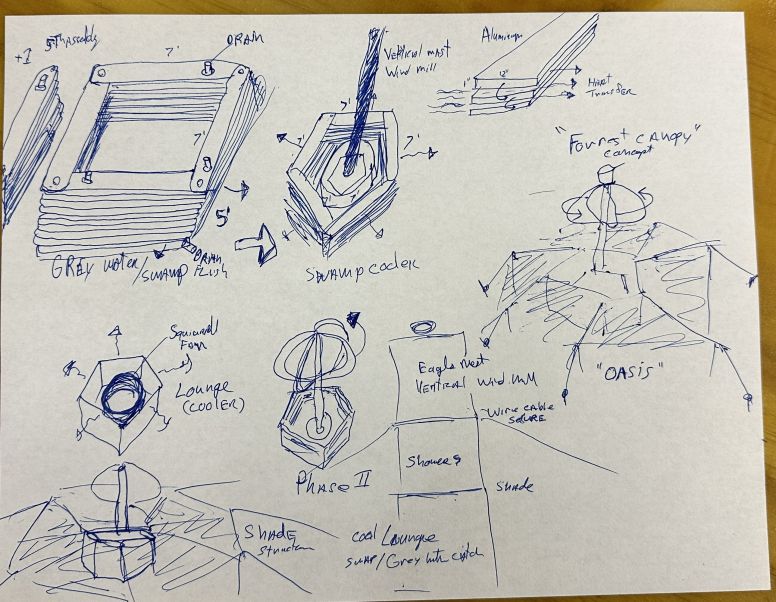 +1
5th Assembly
7'
DRAIN
7'
5'
GREY water
/swamp
DRAIN
Flush
Vertical mast
Wind mill
7'
7'
7'
SWAMP cooler
Aluminum
1"
12"
Heat
Transfer
"Forrest CANOPY"
concept
"OASIS"
Squirrel
Fan
Lounge
(COOLER)
PHASE II
Eagle Nest
Vertical Wind Mill
Wire cable
SECURE
Showers
SHADE
Cool Lounge
SWAP/Grey
SHADE
Structure